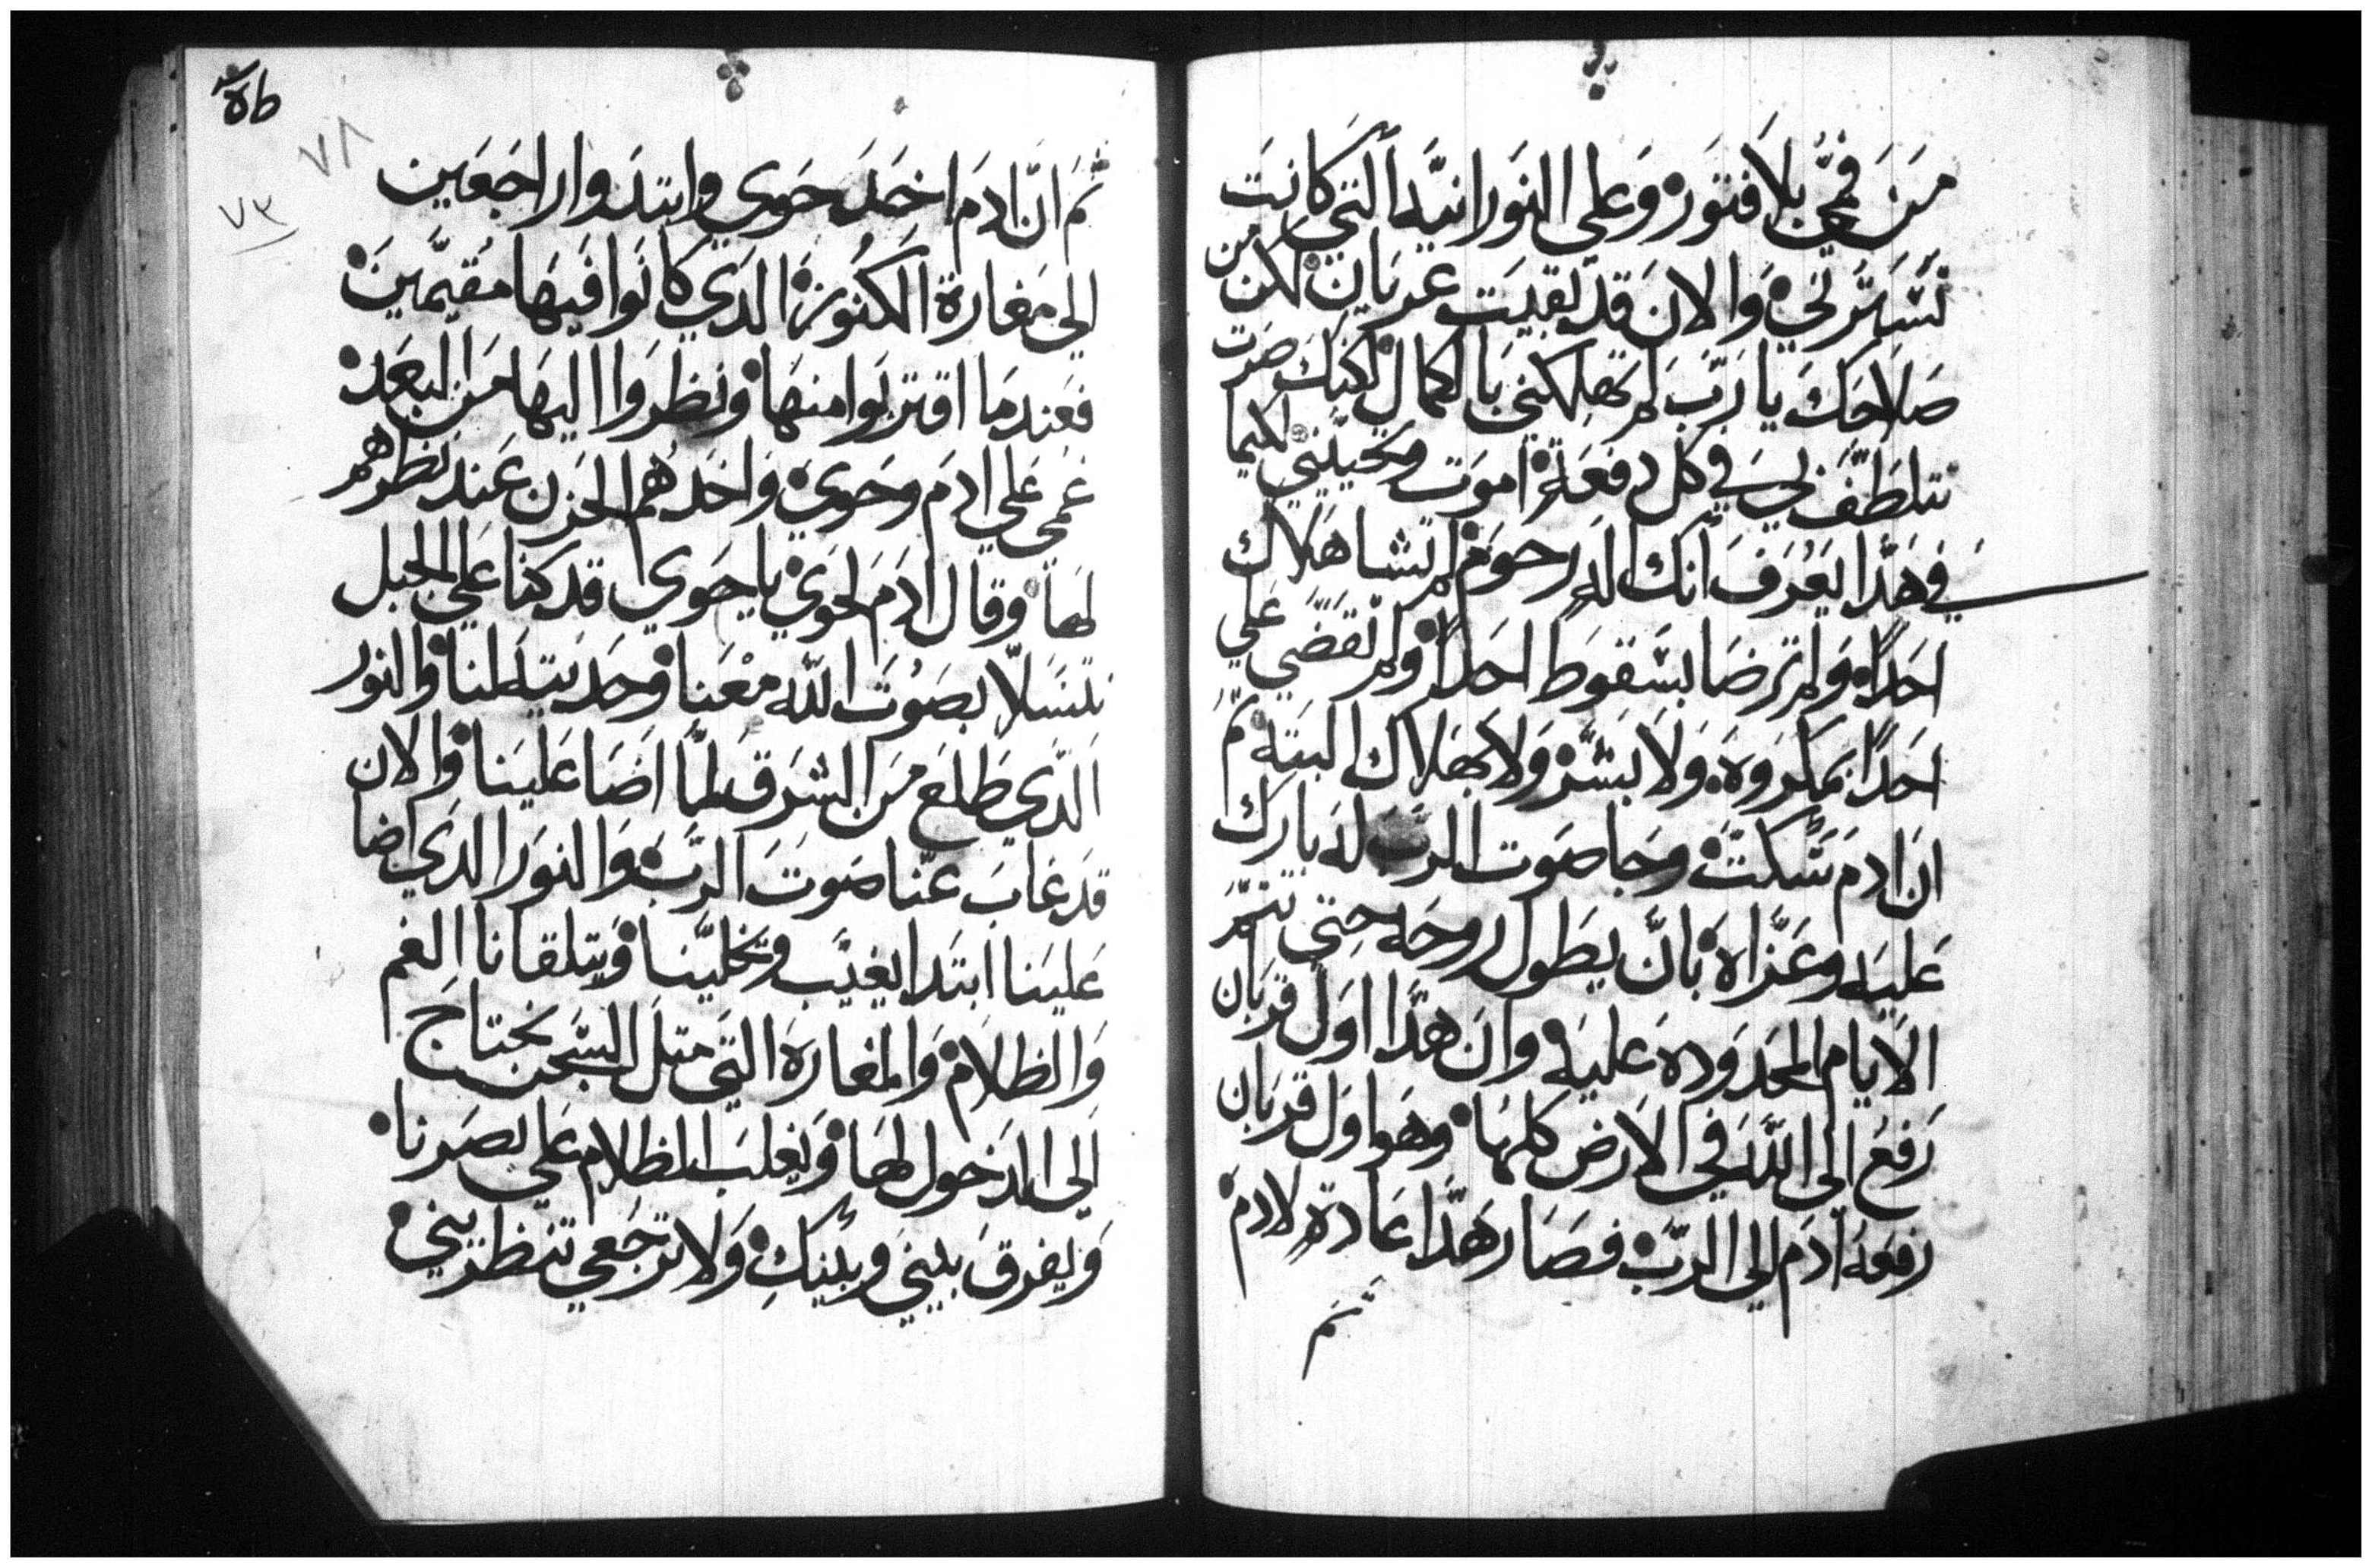 من فمي بلا فتور وعلي النورانيه التي كانت
تستر لي والان قد بقيت عريان لكن من
صلاحك يا رب لم تهلكني بالكمال لكنك صرت
تتلطف لي في كل دفعة اموت وتحييني لكيما
في هذا يعرف انك اله رحوم لم تشا هلاك
احدًا ولم ترضا بسقوط احدًا ولم تقضي علي
احدًا بمكروه ولا بشر ولا بهلاك البته ثم
ان ادم سكت وجا صوت الرب له بارك
عليه وعزاه بان يطول روحه حتي تتم
الايام المحدوده عليه وان هذا اول قربان
رفع الى الله في الارض كلها وهو اول قربان
رفعه ادم الي الرب فصار هذا عادة لادم
ثم
٥٦
٧٨
٧٣
ثم ان ادم اخد حوي وابتدوا راجعين
الي مغارة الكنوز الدي كانوا فيها مقيمين
فعند ما اقتربوا منها ونظروا اليها من البعد
غمي علي ادم وحوي واخدهما الحزن عند نظرهم
لها وقال ادم لحوي يا حوي قد كنا علي الجبل
نتسلا بصوت الله معنا وحديته لنا والنور
الدي طلع من الشرق لما اضا علينا والان
قد غاب عنا صوت الرب والنور الدي اضا
علينا ابتدا يغيب ويخلينا ويتلقانا الغم
والظلام والمغاره التي متل السجن نحتاج
الى الدخول لها ويغلب الظلام علي بصرنا
ويفرق بيني وبينك ولا ترجعي تنظريني